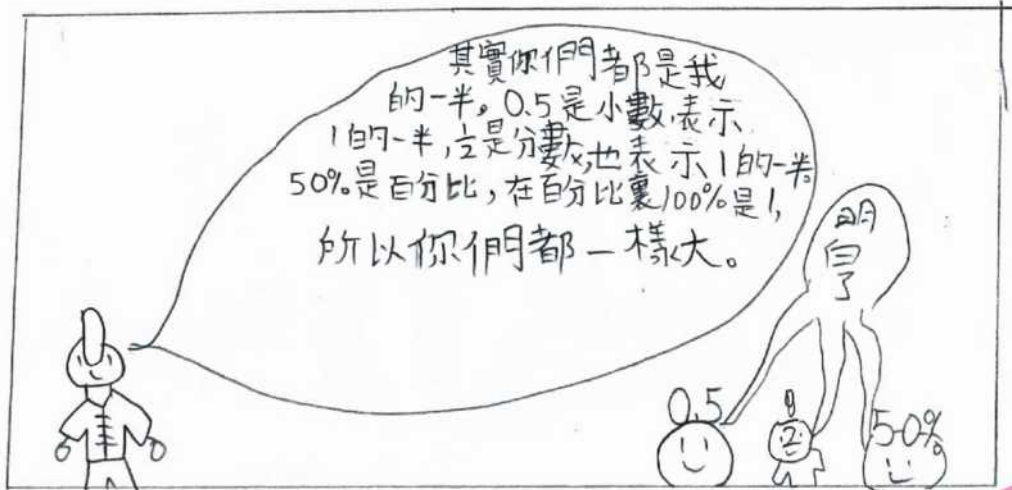 其實你們都是我
的一半。0.5是小數,表示
1的一半,½是分數,也表示1的一半。
50%是百分比,在百分比裏100%是1,
所以你們都一樣大。
明
白
了
0.5
1
2
50%